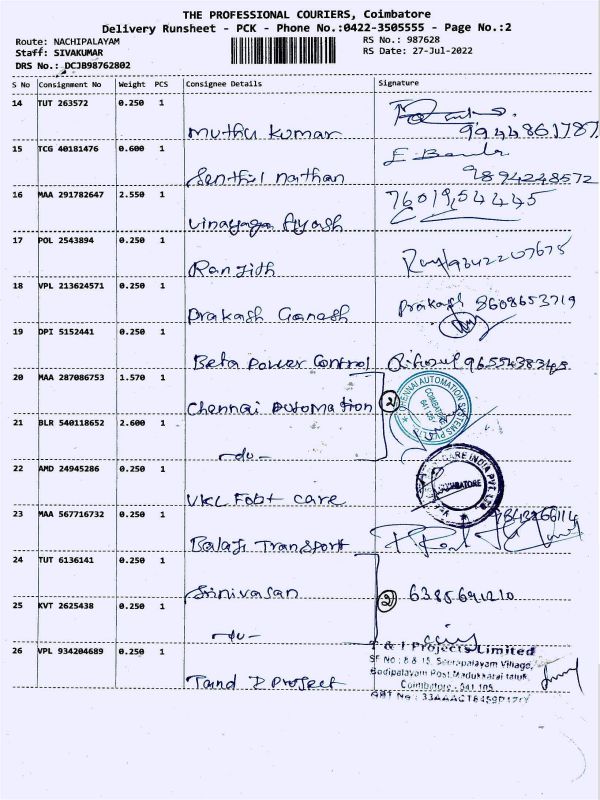 THE PROFESSIONAL COURIERS, Coimbatore
Delivery Runsheet - PCK - Phone No.:0422-3505555 - Page No.:2
Route: NACHIPALAYAM RS No.: 987628
Staff: SIVAKUMAR RS Date: 27-Jul-2022
DRS No.: DCJB98762802
S No Consignment No Weight PCS Consignee Details Signature
14 TUT 263572 0.250 1
Muthu Kumar 9944861787
15 TCG 40181476 0.600 1
Senthil nathan 9894248572
16 MAA 291782647 2.550 1 7601954445
Vinayaga Ayash
17 POL 2543894 0.250 1
Ranjith
18 VPL 213624571 0.250 1
Prakash Ganesh Prakash 8608653719
19 DPI 5152441 0.250 1
Beta Power Control
20 MAA 287086753 1.570 1
Chennai Automation 2 CHENNAI AUTOMATION SYSTEMS PVT. COIMBATORE
21 BLR 540118652 2.600 1
-do-
22 AMD 24945286 0.250 1 CARE INDIA PVT. COIMBATORE
VKC Foot care
23 MAA 567716732 0.250 1
Balaji Transport
24 TUT 6136141 0.250 1
Srinivasan 2
25 KVT 2625438 0.250 1
-do-
26 VPL 934204689 0.250 1
T & I Projects Limited
SF No : 8 & 15, Seerapalayam Village,
Bodipalayam Post, Madukkarai taluk,
Coimbatore - 641 105.
GST No :
Tand I Project